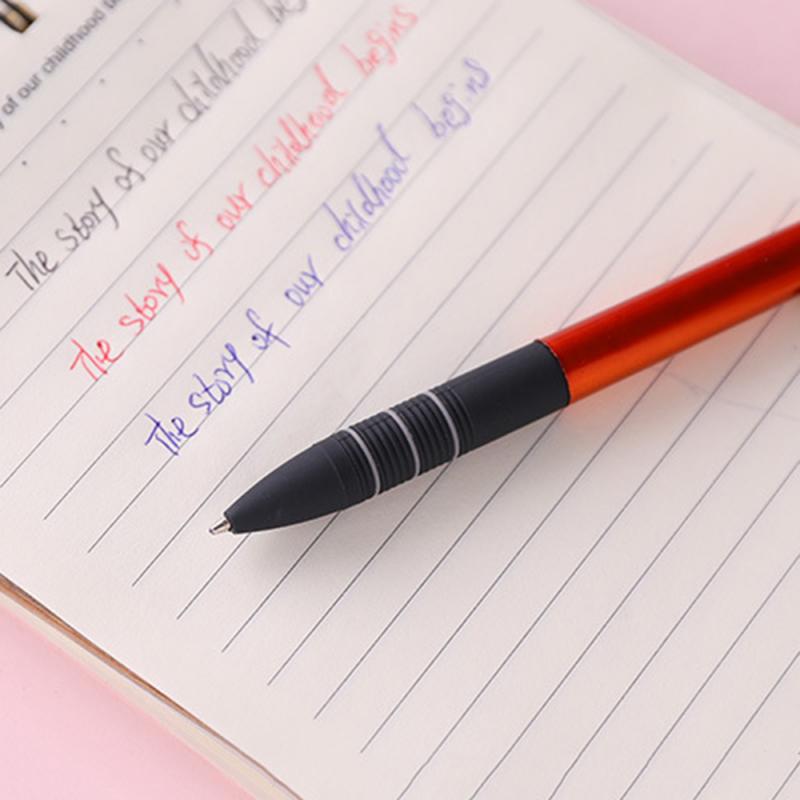 of our childhood
The story of our childhood be
The story of our childhood begins
The story of our childhood begins